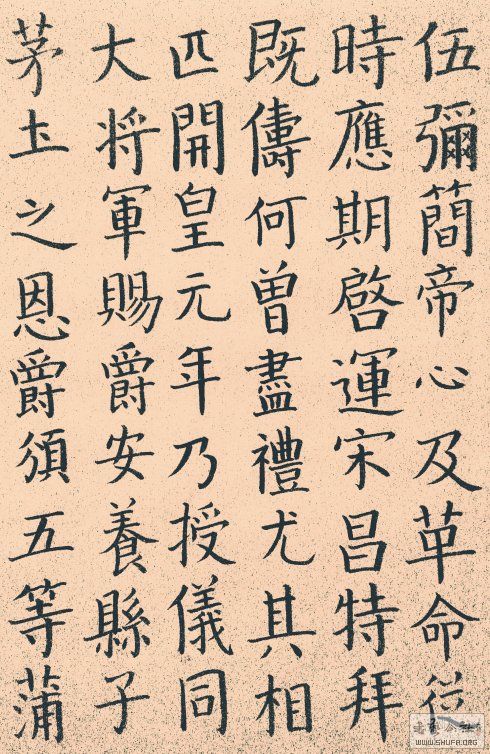 伍彌簡帝心及革命
時應期啓運宋昌特拜
既儔何曾盡禮尤其相
匹開皇元年乃授儀同
大将軍賜爵安養縣子
茅土之恩爵須五等蒲
WWW.SHUFA.ORG